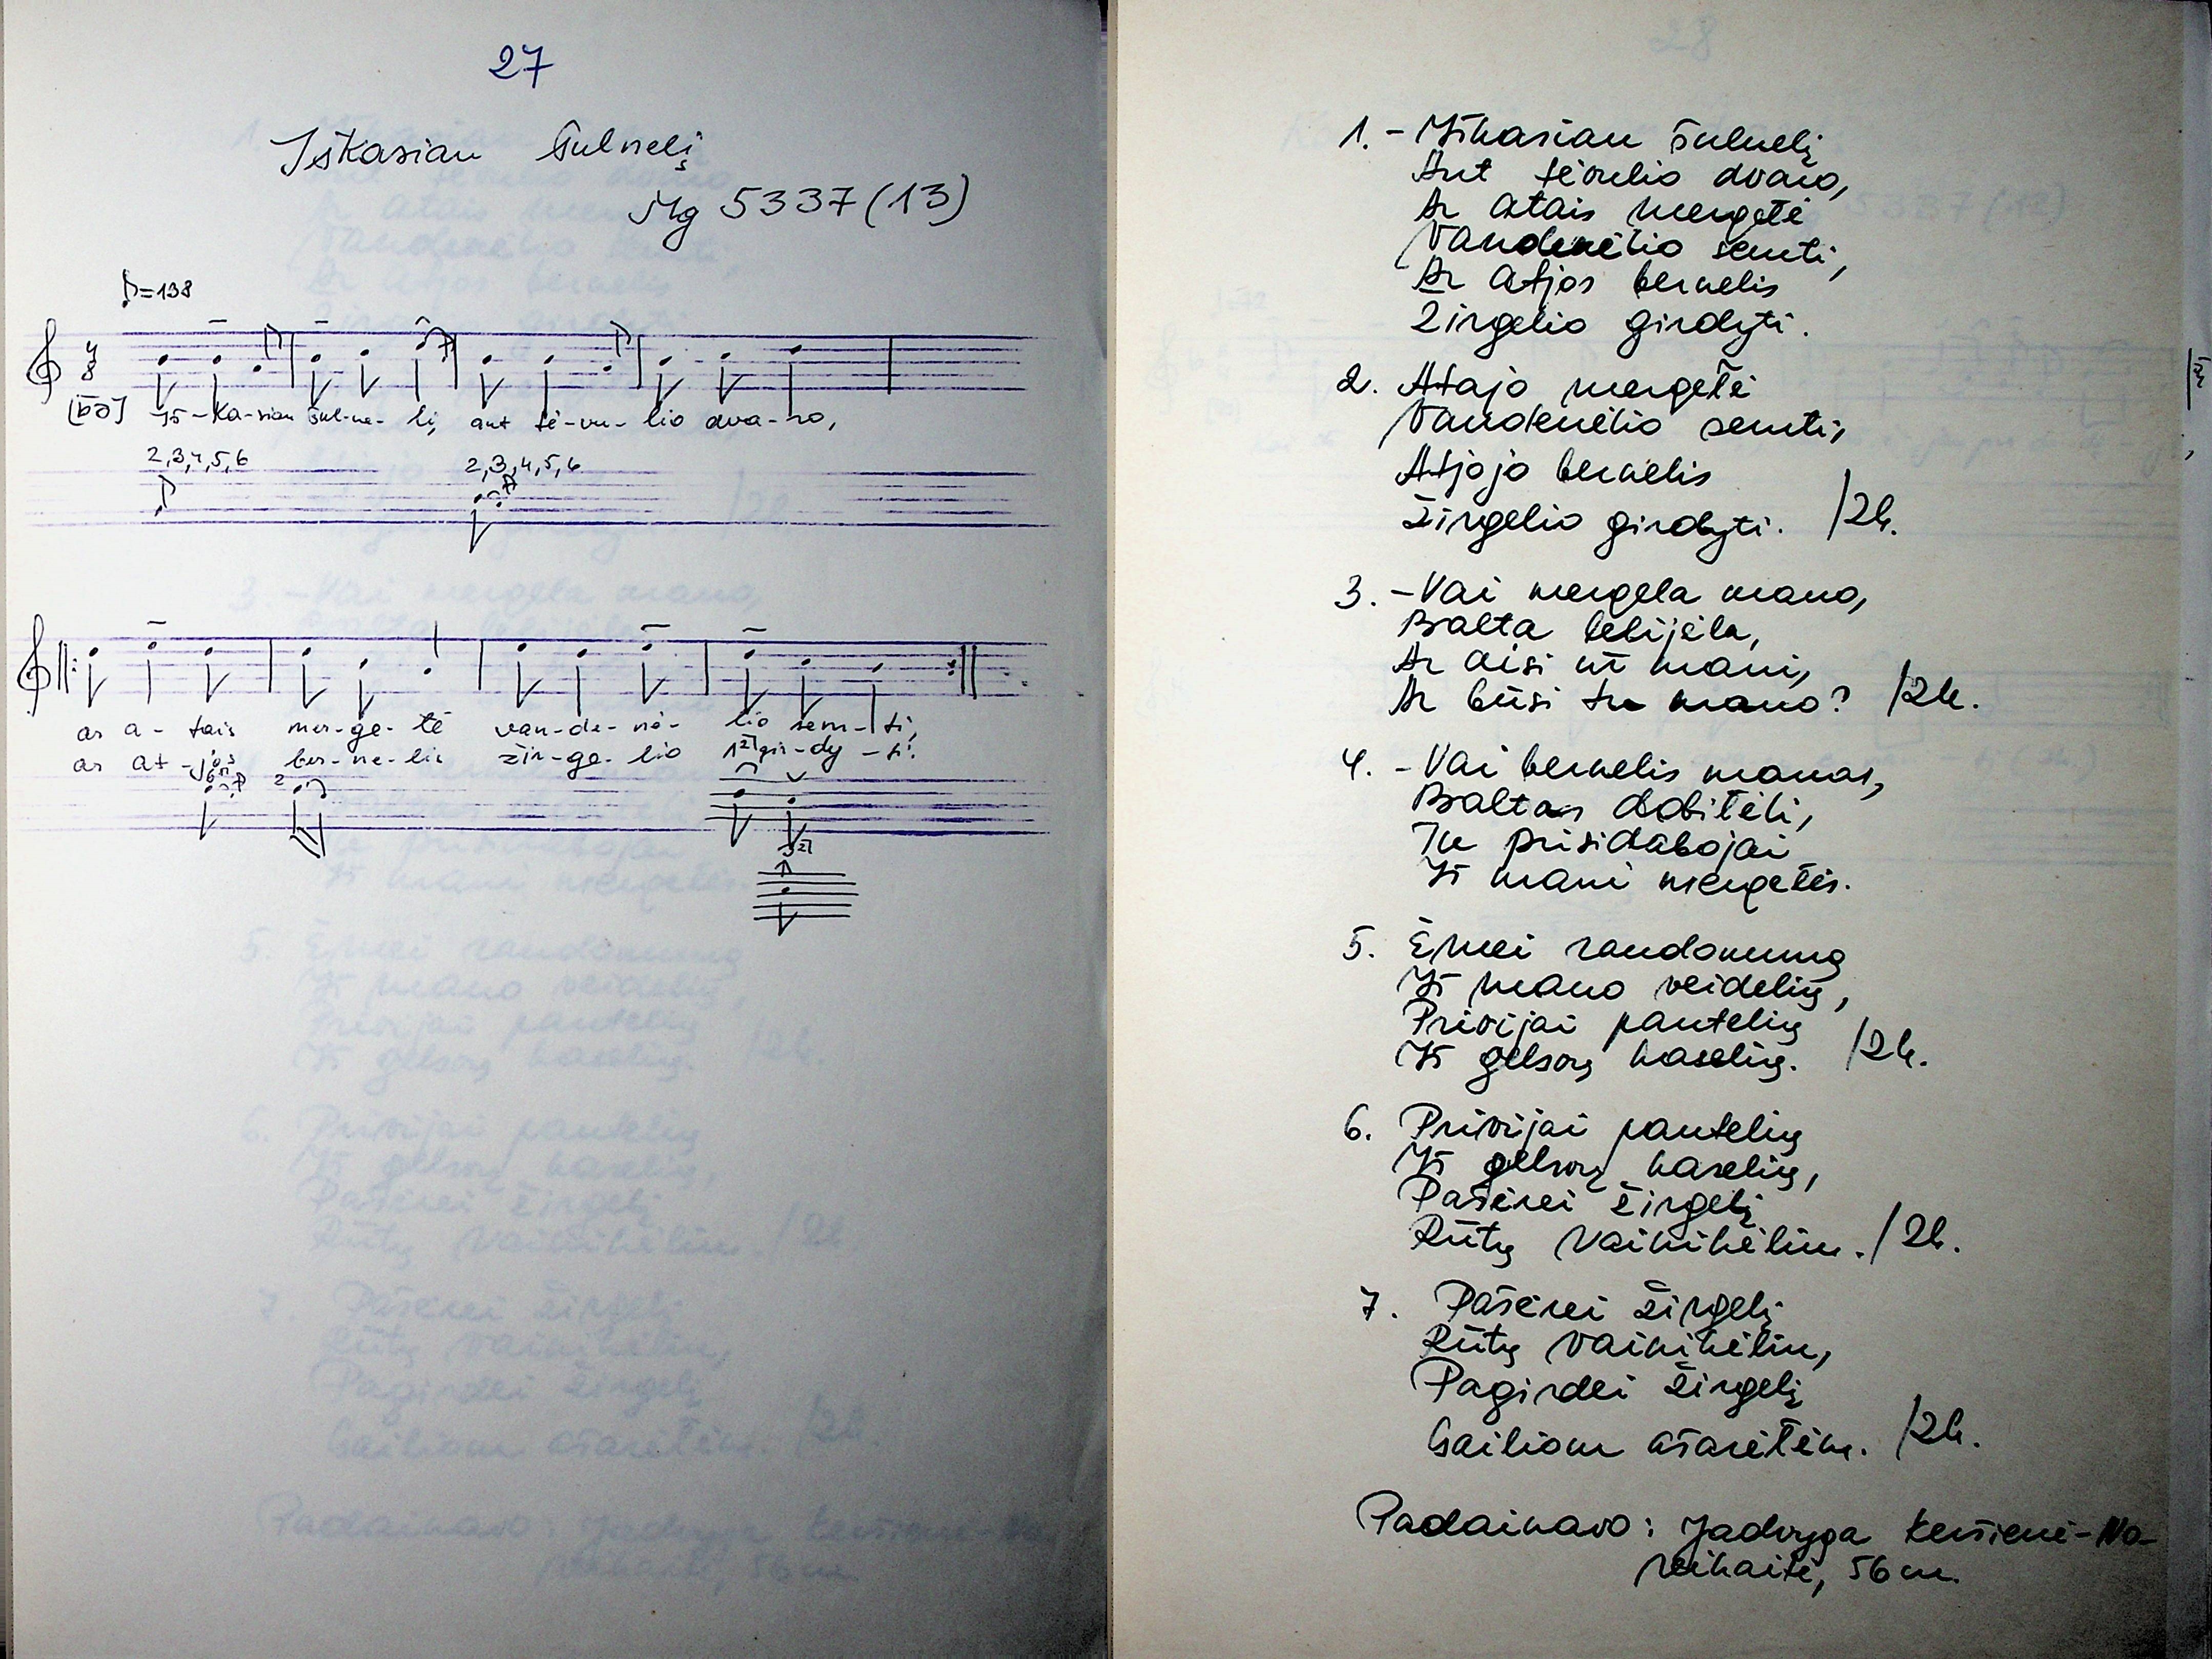 27
Iškasiau šulnelį
Mg 5337(13)
♪=138
Iš-ka-siau šul-ne-lį, ant tė-vu-lio dva-ro,
2,3,4,5,6 2,3,4,5,6
ar a-tais mer-ge-tė van-de-nė-lio sem-ti,
ar at-jos ber-ne-lis žir-ge-lio gir-dy-ti.
1. - Iškasiau šulnelį
Ant tėvulio dvaro,
Ar atais mergetė
Vandenėlio semti,
Ar atjos bernelis
Žirgelio girdyti.
2. Atajo mergetė
Vandenėlio semti,
Atjojo bernelis
Žirgelio girdyti. /2k.
3. - Vai mergela mano,
Balta lelijėla,
Ar aisi už mani,
Ar būsi tu mano? /2k.
4. - Vai bernelis manas,
Baltas dobitėli,
Tu prisidabojai
Iš mani mergetės.
5. Ėmei raudonumą
Iš mano veidelių,
Privijai pantelių
Iš gelsvų kaselių. /2k.
6. Privijai pantelių
Iš gelsvų kaselių,
Pašėrei žirgelį
Rūtų vainikėliu. /2k.
7. Pašėrei žirgelį
Rūtų vainikėliu,
Pagirdei žirgelį
Gailiom ašarėtėm. /2k.
Padainavo: Jadvyga Keršienė-No-
reikaitė, 56 m.